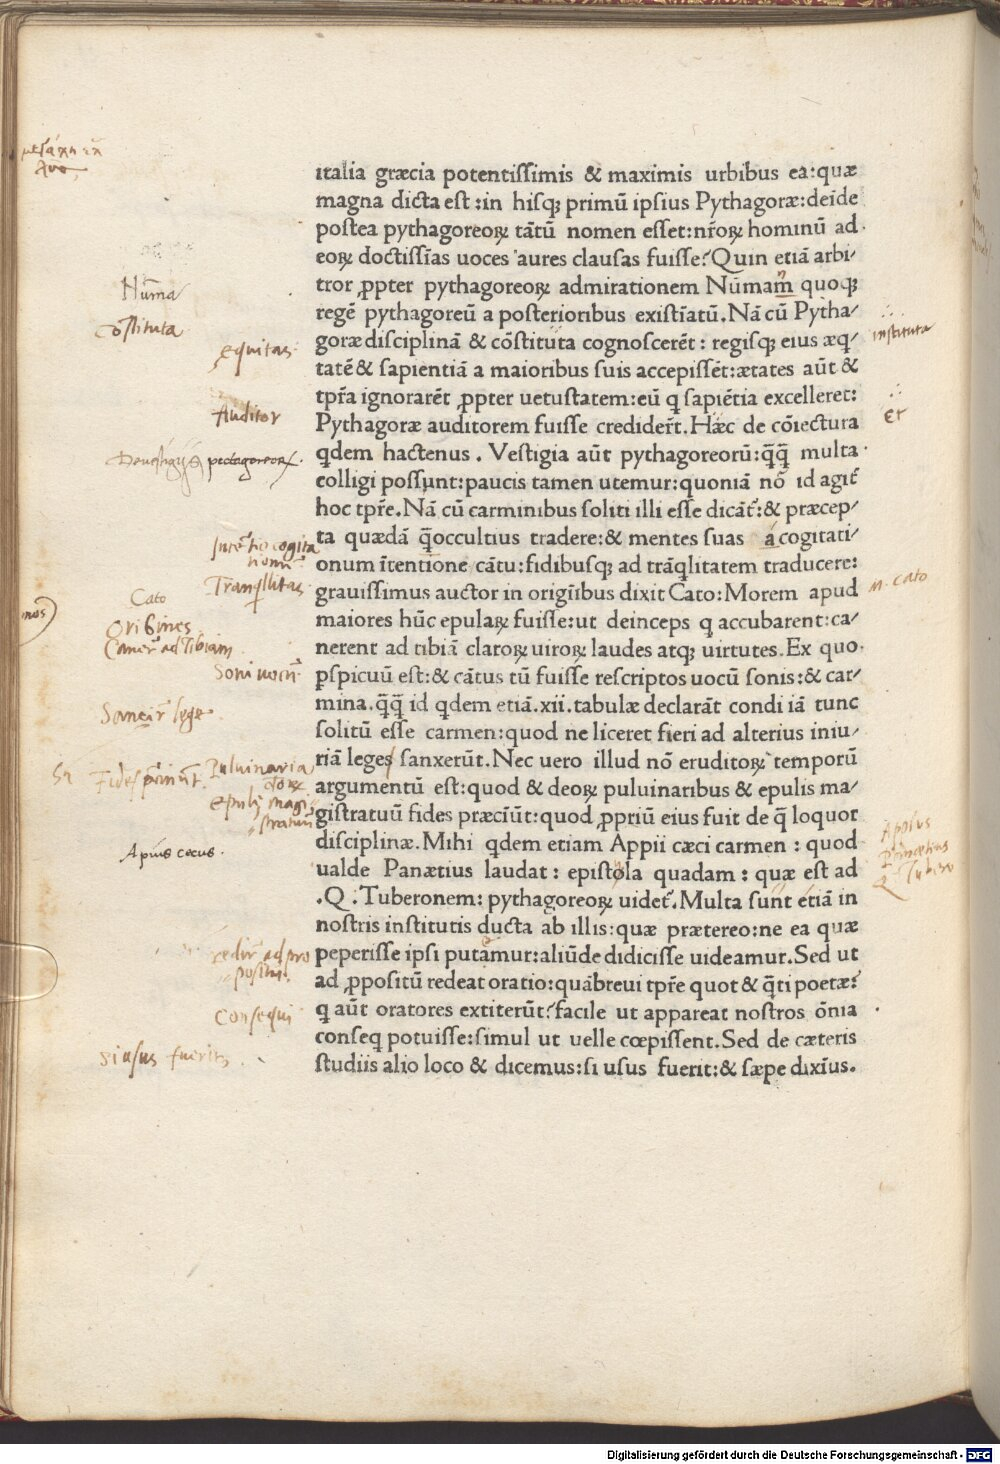 italia græcia potentissimis & maximis urbibus ea:quæ
magna dicta est:in hisqꝫ primū ipsius Pythagoræ:deīde
postea pythagoreoꝝ tātū nomen esset:nr̄oꝝ hominū ad
eoꝝ doctissīas uoces aures clausas fuisse?Quin etiā arbi-
tror ꝓpter pythagoreoꝝ admirationem Numam quoqꝫ
regē pythagoreū a posterioribus existīatū.Nā cū Pytha-
goræ disciplinā & cōstituta cognoscerēt: regisqꝫ eius æq-
tatē & sapientiā a maioribus suis accepissēt:ætates aūt &
tpr̄a ignorarēt ꝓpter uetustatem:eū q sapiētia excelleret:
Pythagoræ auditorem fuisse credider̄t.Hæc de cōiectura
qdem hactenus. Vestigia aūt pythagoreorū:q̄q̄ multa
colligi possunt:paucis tamen utemur:quoniā nō id agit̄
hoc tpr̄e.Nā cū carminibus soliti illi esse dicāt̄:& præcep-
ta quædā q̄occultius tradere:& mentes suas a cogitati-
onum ītentione cātu:fidibusqꝫ ad trāqlitatem traducere:
grauissimus auctor in origīibus dixit Cato:Morem apud
maiores hūc epulaꝝ fuisse:ut deinceps q accubarent:ca-
nerent ad tibiā claroꝝ uiroꝝ laudes atqꝫ uirtutes.Ex quo
ꝑspicuū est:& cātus tū fuisse rescriptos uocū sonis:& car-
mina.q̄q̄ id qdem etiā.xii.tabulæ declarāt condi iā tunc
solitū esse carmen:quod ne liceret fieri ad alterius iniu-
riā leges sanxerūt.Nec uero illud nō eruditoꝝ temporū
argumentū est:quod & deoꝝ puluinaribus & epulis ma-
gistratuū fides præcīūt:quod ꝓpriū eius fuit de q̄ loquor
disciplinæ.Mihi qdem etiam Appii cæci carmen: quod
ualde Panætius laudat: epistola quadam: quæ est ad
.Q.Tuberonem: pythagoreoꝝ uidet̄.Multa sunt etiā in
nostris institutis ducta ab illis:quæ prætereo:ne ea quæ
peperisse ipsi putamur:aliūde didicisse uideamur.Sed ut
ad ꝓpositū redeat oratio:quābreui tpr̄e quot & q̄ti poetæ?
q aūt oratores extiterūt?facile ut appareat nostros ōnia
conseq potuisse:simul ut uelle cœpissent.Sed de cæteris
studiis alio loco & dicemus:si usus fuerit:& sæpe dixīus.
Numa
Cōstituta
equitas
Auditor
Intētio cogita
tionū
Tranqllitas
Cato
Origines
Caner̄ ad Tibiam
Soni uocū
Sancir̄ lege
Puluinaria
deoꝝ
epulis magi
stratuū
Apius cecus.
redir̄ ad pro
positū
Consequi
Si usus fuerit
instituta
Et
M. Cato
Apius
Panætius
Q Tubero
Digitalisierung gefördert durch die Deutsche Forschungsgemeinschaft - DFG